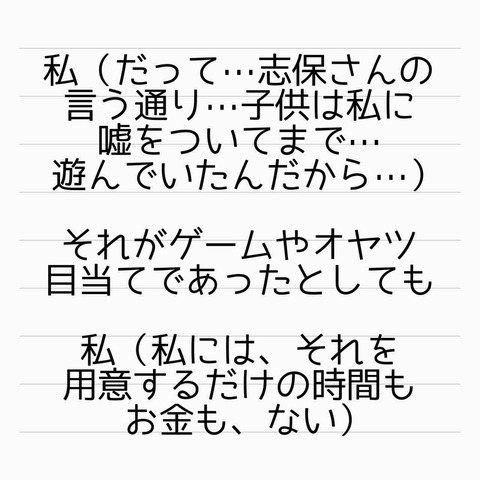 私（だって…志保さんの
言う通り…子供は私に
嘘をついてまで…
遊んでいたんだから…）
それがゲームやオヤツ
目当てであったとしても
私（私には、それを
用意するだけの時間も
お金も、ない）